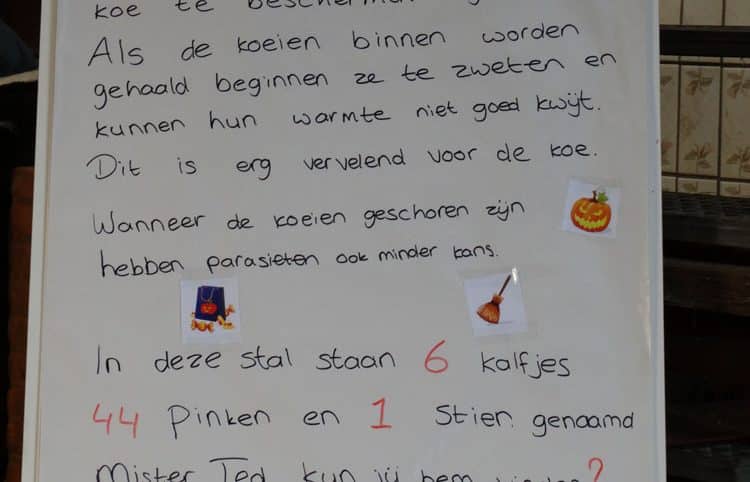 koe te beschermen
Als de koeien binnen worden
gehaald beginnen ze te zweten en
kunnen hun warmte niet goed kwijt.
Dit is erg vervelend voor de koe.
Wanneer de koeien geschoren zijn
hebben parasieten ook minder kans.
In deze stal staan 6 kalfjes
44 Pinken en 1 Stier genaamd
Mister Ted kun jij hem vinden?